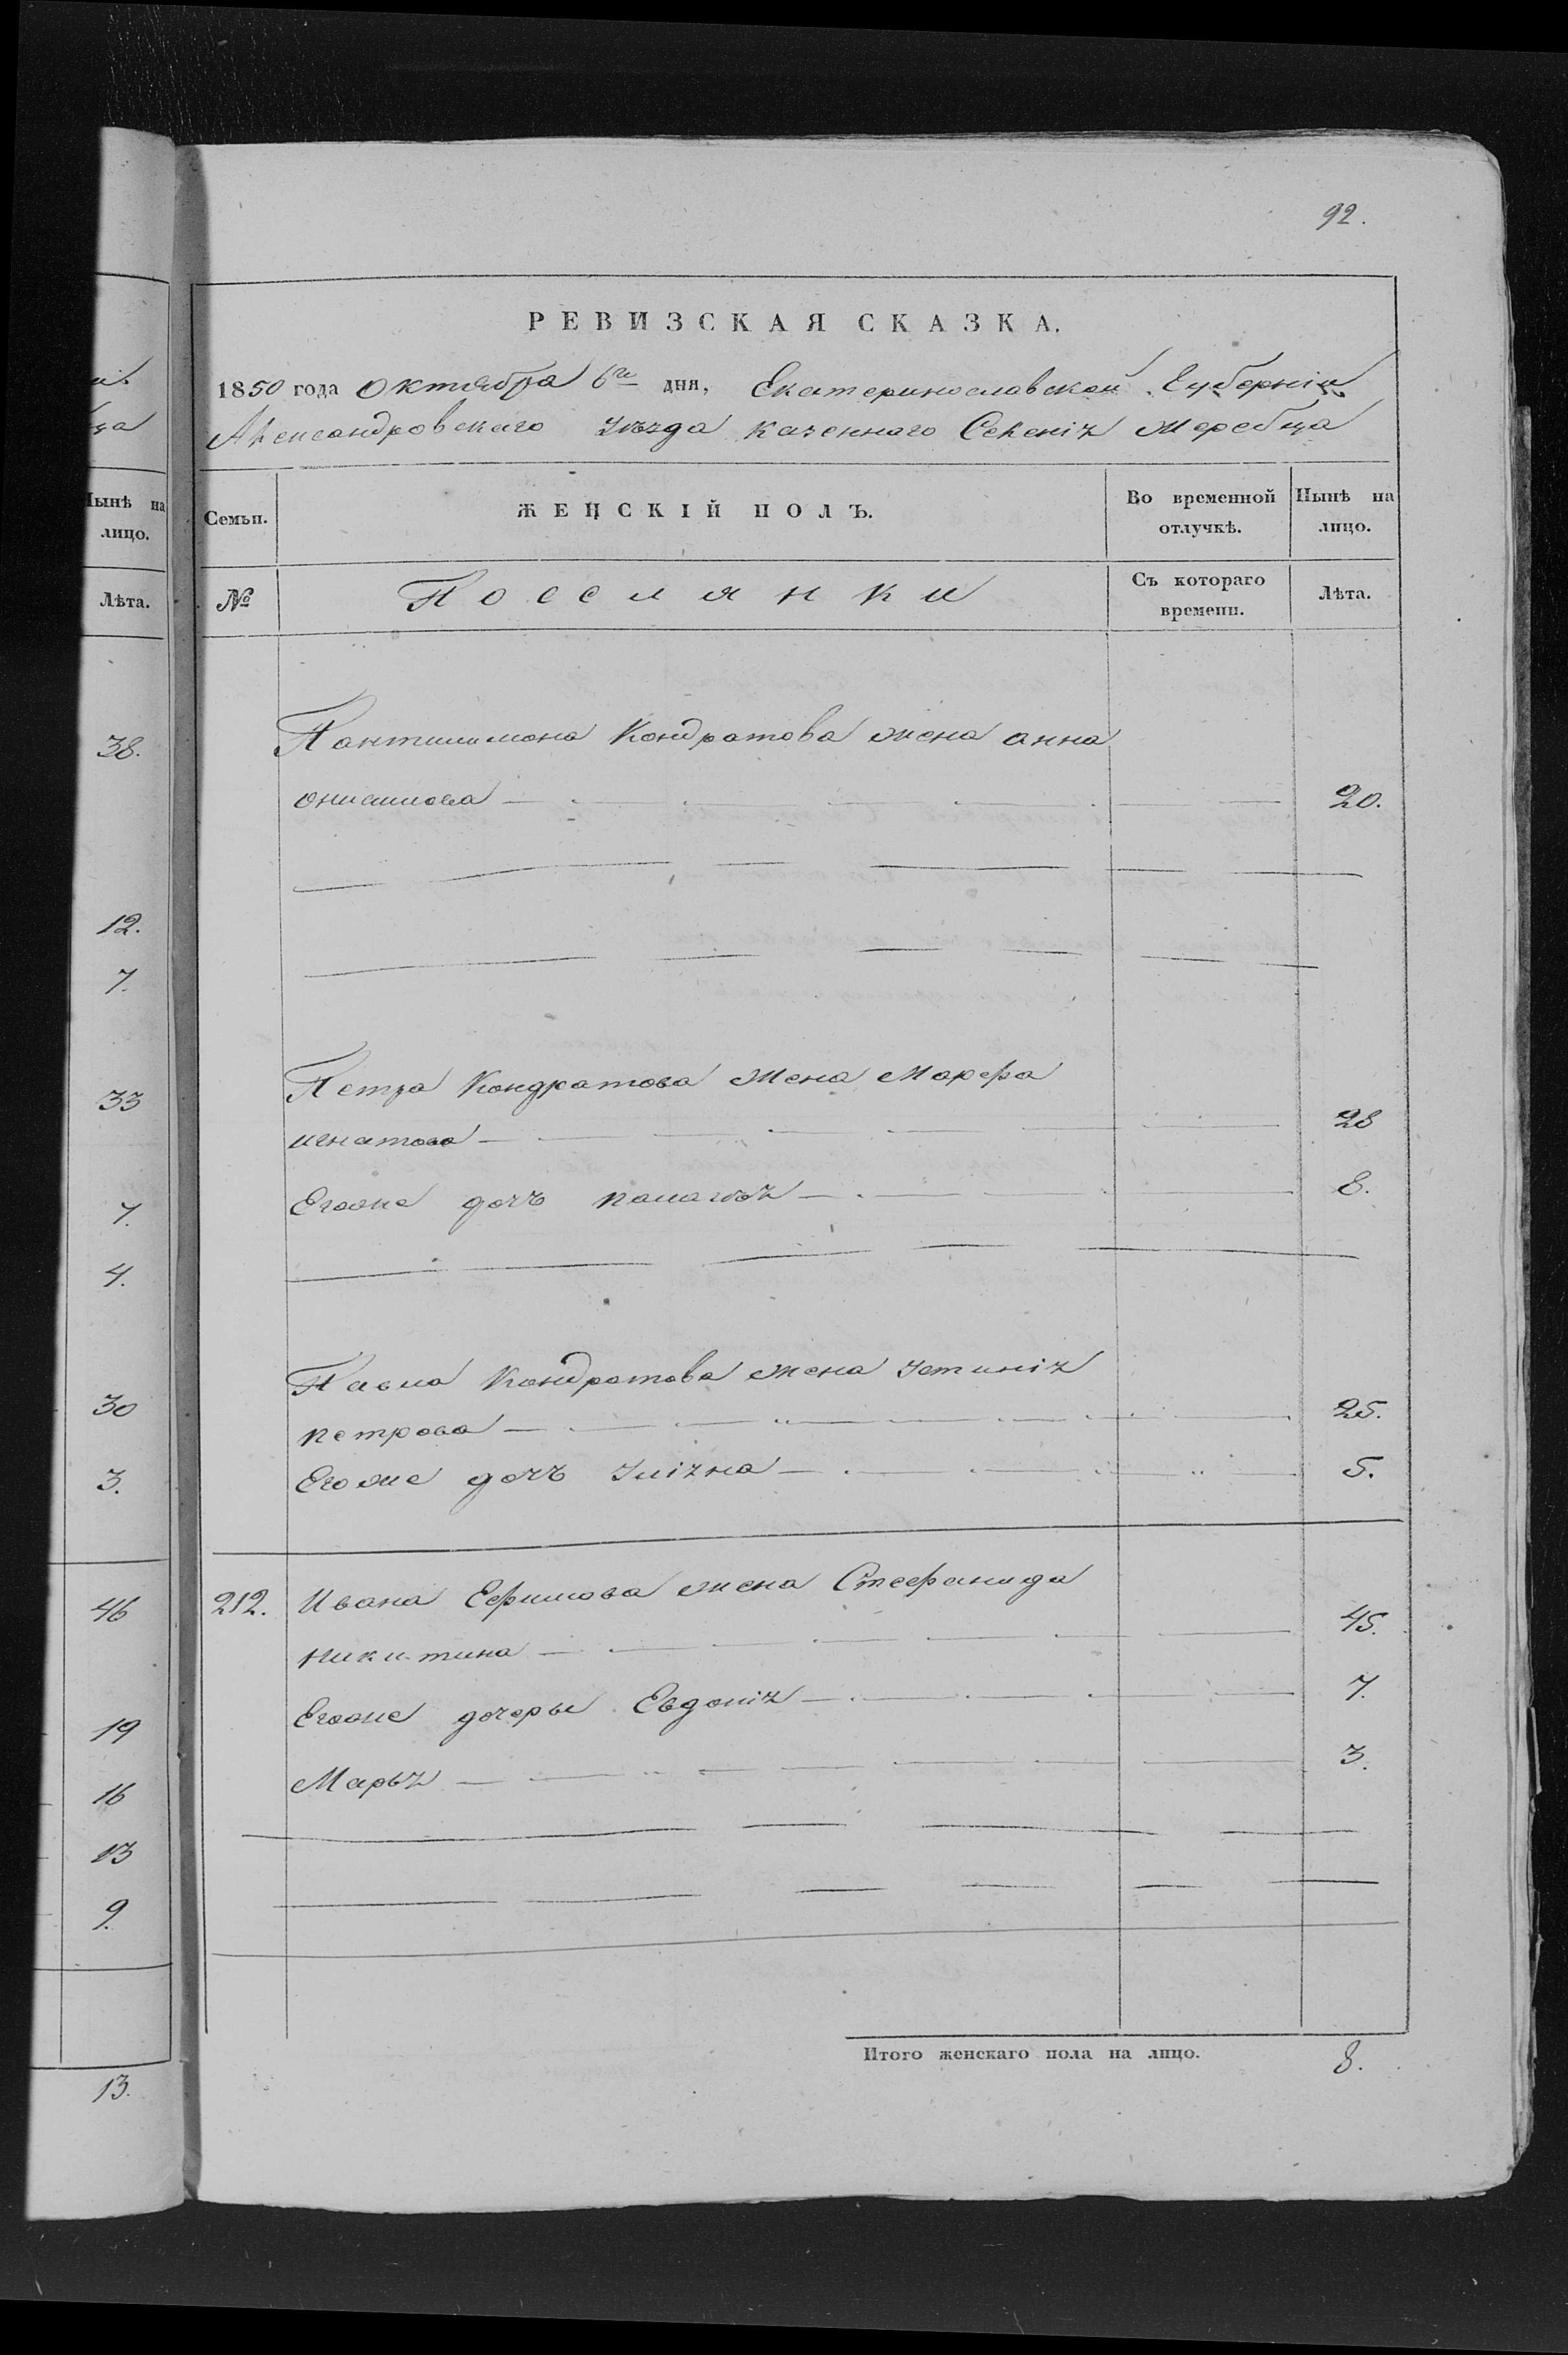 92.
РЕВИЗСКАЯ СКАЗКА.
1850 года Октября 6го дня, Екатеринославской Губерніи
Александровскаго Уѣзда казеннаго Селенія Жеребца
Нынѣ на лицо.
Семьи. ЖЕНСКІЙ ПОЛЪ. Во временной отлучкѣ. Нынѣ на лицо.
Лѣта.
№ Поселянки Съ котораго времени. Лѣта.
38.
Пантилимона Кондратова жена анна
онисимова 20.
12.
7.
33
Петра Кондратова жена Марфа
игнатова 28
Егоже дочь 8.
7.
4.
30
Павла Кондратова жена Устинія
петрова 25.
3.
Егоже дочь Уліяна 5.
46
212. Ивана Ефимова жена Стефанида
никитина 45.
Егоже дочеры Евдокія 7.
19
Марья 3.
16
13
9.
Итого женскаго пола на лицо. 8.
13.